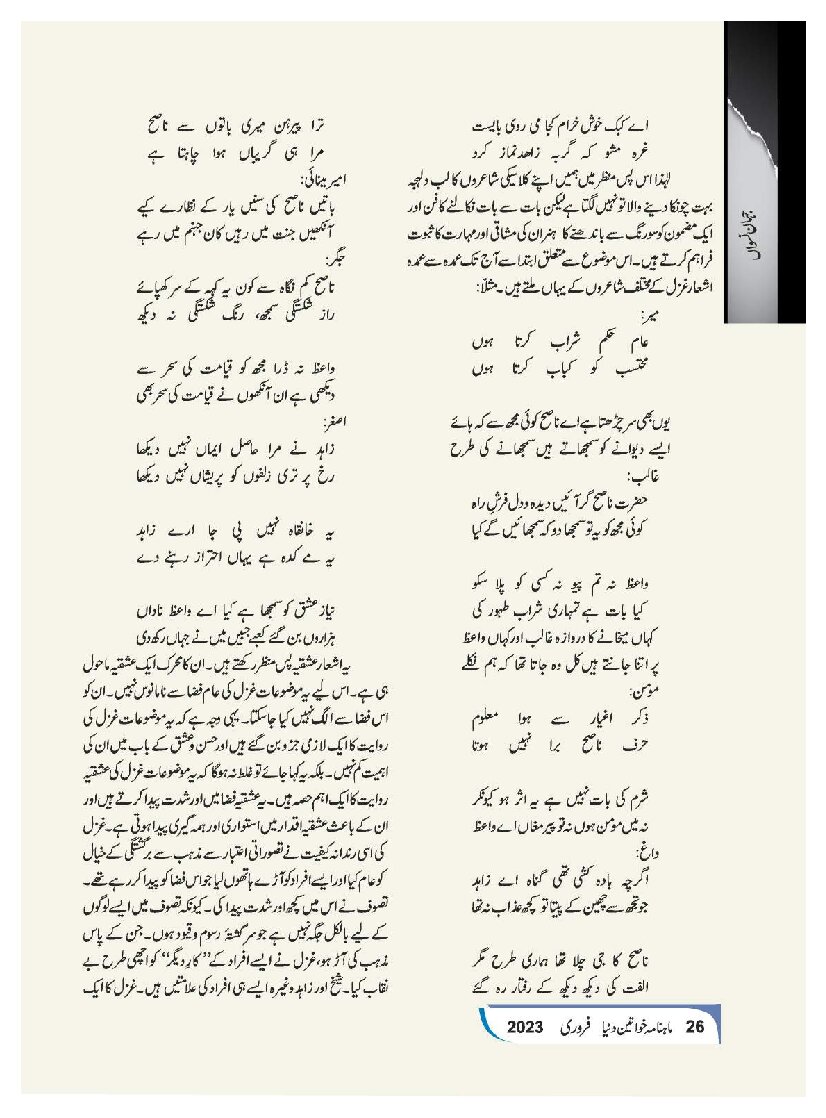 اے کبک خوش خرام کجا می روی بایست
غرہ مشو کہ گربہ زاهد نماز کرد
لہٰذا اس پس منظر میں ہمیں اپنے کلاسیکی شاعروں کا لب ولہجہ
بہت چونکا دینے والا تو نہیں لگتا ہے لیکن بات سے بات نکالنے کا فن اور
ایک مضمون کو سو رنگ سے باندھنے کا ہنر ان کی مشاقی اور مہارت کا ثبوت
فراہم کرتے ہیں۔ اس موضوع سے متعلق ابتدا سے آج تک عمدہ سے عمدہ
اشعار غزل کے مختلف شاعروں کے یہاں ملتے ہیں۔ مثلاً:
میر:
عام حکم شراب کرتا ہوں
محتسب کو کباب کرتا ہوں
یوں بھی سر چڑھتا ہے اے ناصح کوئی مجھ سے کہ ہائے
ایسے دیوانے کو سمجھاتے ہیں سمجھانے کی طرح
غالب:
حضرت ناصح گر آئیں دیدہ و دل فرشِ راہ
کوئی مجھ کو یہ تو سمجھا دو کہ سمجھائیں گے کیا
واعظ نہ تم پیو نہ کسی کو پلا سکو
کیا بات ہے تمہاری شراب طہور کی
کہاں میخانے کا دروازہ غالب اور کہاں واعظ
پر اتنا جانتے ہیں کل وہ جاتا تھا کہ ہم نکلے
مومن:
ذکر اغیار سے ہوا معلوم
حرف ناصح برا نہیں ہوتا
شرم کی بات نہیں ہے یہ اثر ہو کیونکر
نہ میں مومن ہوں نہ تو پیر مغاں اے واعظ
داغ:
اگرچہ بادہ کشی تھی گناہ اے زاہد
جو تجھ سے چھین کے پیتا تو کچھ عذاب نہ تھا
ناصح کا جی چلا تھا ہماری طرح مگر
الفت کی دیکھ دیکھ کے رفتار رہ گئے
ترا پیرہن میری باتوں سے ناصح
مرا ہی گریباں ہوا چاہتا ہے
امیر مینائی:
باتیں ناصح کی سنیں یار کے نظارے کیے
آنکھیں جنت میں رہیں کان جہنم میں رہے
جگر:
ناصح کم نگاہ سے کون یہ کہہ کے سر کھپائے
راز شکستگی سمجھ، رنگ شکستگی نہ دیکھ
واعظ نہ ڈرا مجھ کو قیامت کی سحر سے
دیکھی ہے ان آنکھوں نے قیامت کی سحر بھی
اصغر:
زاہد نے مرا حاصل ایماں نہیں دیکھا
رخ پر تری زلفوں کو پریشاں نہیں دیکھا
یہ خانقاہ نہیں پی جا ارے زاہد
یہ مے کدہ ہے یہاں احتراز رہنے دے
نیاز عشق کو سمجھا ہے کیا اے واعظ ناداں
ہزاروں بن گئے کعبے جبیں میں نے جہاں رکھ دی
یہ اشعار عشقیہ پس منظر رکھتے ہیں۔ ان کا محرک ایک عشقیہ ماحول
ہی ہے۔ اس لیے یہ موضوعات غزل کی عام فضا سے نامانوس نہیں۔ ان کو
اس فضا سے الگ نہیں کیا جاسکتا۔ یہی وجہ ہے کہ یہ موضوعات غزل کی
روایت کا ایک لازمی جزو بن گئے ہیں اور حسن و عشق کے باب میں ان کی
اہمیت کم نہیں۔ بلکہ یہ کہا جائے تو غلط نہ ہوگا کہ یہ موضوعات غزل کی عشقیہ
روایت کا ایک اہم حصہ ہیں۔ یہ عشقیہ فضا میں اور شدت پیدا کرتے ہیں اور
ان کے باعث عشقیہ اقدار میں استواری اور ہمہ گیری پیدا ہوتی ہے۔ غزل
کی اسی رندانہ کیفیت نے تصوراتی اعتبار سے مذہب سے برگشتگی کے خیال
کو عام کیا اور ایسے افراد کو آڑے ہاتھوں لیا جو اس فضا کو پیدا کر رہے تھے۔
تصوف نے اس میں کچھ اور شدت پیدا کی۔ کیونکہ تصوف میں ایسے لوگوں
کے لیے بالکل جگہ نہیں ہے جو سرگشتۂ رسوم و قیود ہوں۔ جن کے پاس
مذہب کی آڑ ہو، غزل نے ایسے افراد کے ’’کارِ دیگر‘‘ کو اچھی طرح بے
نقاب کیا۔ شیخ اور زاہد وغیرہ ایسے ہی افراد کی علامتیں ہیں۔ غزل کا ایک
جہانِ نسواں
26 ماہنامہ خواتین دنیا فروری 2023